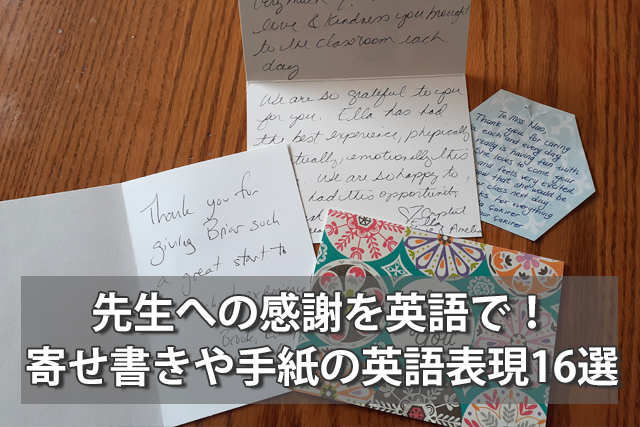 very much
love & kindness you brought
to the classroom each
day
We are so grateful to you
for you. Ella has had
the best experience, physically
tually, emotionally this
We are so happy to
had this opportunity
Ella
To Miss Nao,
Thank you for caring
each and every day
really is having fun with
She loves to come your
and feels very excited
that she would be
class next day
for everything
Thank you for
giving Briar such
a great start to
You
先生への感謝を英語で！
寄せ書きや手紙の英語表現16選